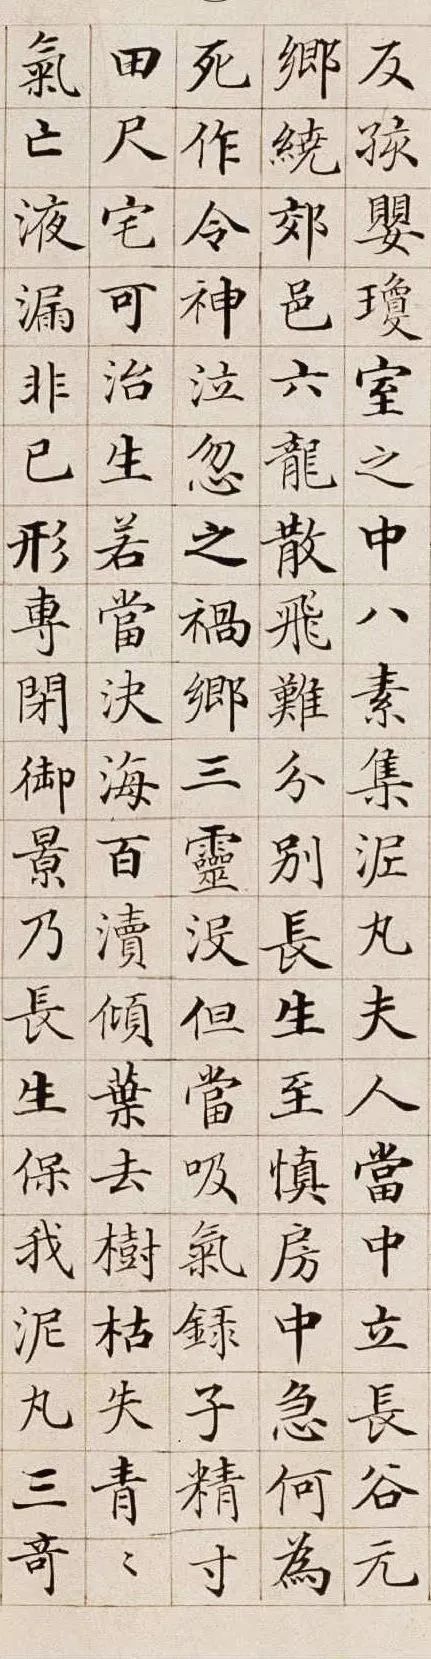 反孩嬰瓊室之中八素集泥丸夫人當中立長谷元
鄉繞郊邑六龍散飛難分別長生至慎房中急何為
死作令神泣忽之禍鄉三靈没但當吸氣録子精寸
田尺宅可治生若當決海百瀆傾葉去樹枯失青〻
氣亡液漏非已形專閉御景乃長生保我泥丸三奇